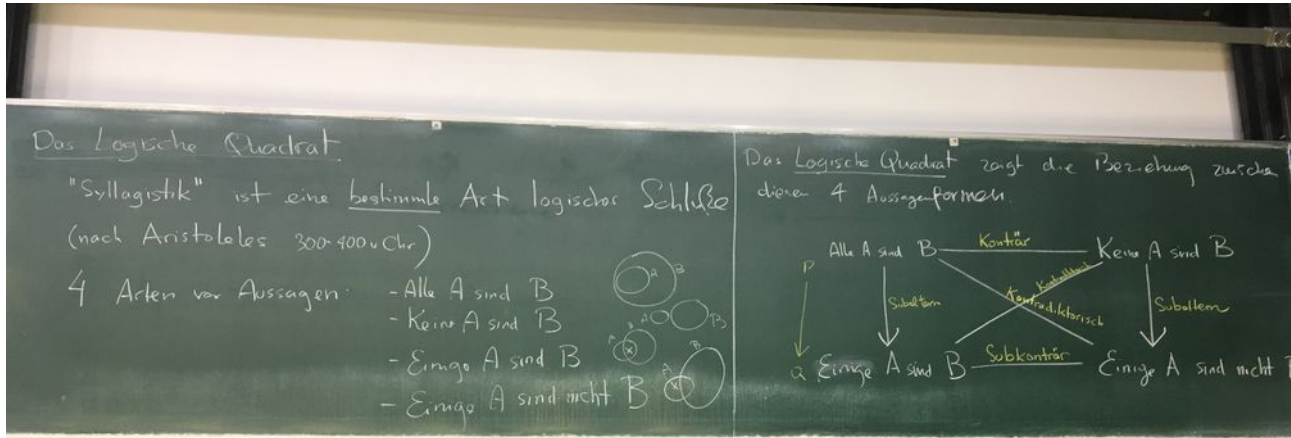 Das Logische Quadrat
"Syllagistik" ist eine bestimmte Art logischer Schlüße
(nach Aristoteles 300-400 v Chr)
4 Arten von Aussagen:
- Alle A sind B
- Keine A sind B
- Einige A sind B
- Einige A sind nicht B
A B
A B
A B
A B
Das Logische Quadrat zeigt die Beziehung zwische
diesen 4 Aussagenformen.
Alle A sind B Konträr Keine A sind B
P
Subaltern Kontradiktorisch Subaltern
Q Einige A sind B Subkonträr Einige A sind nicht